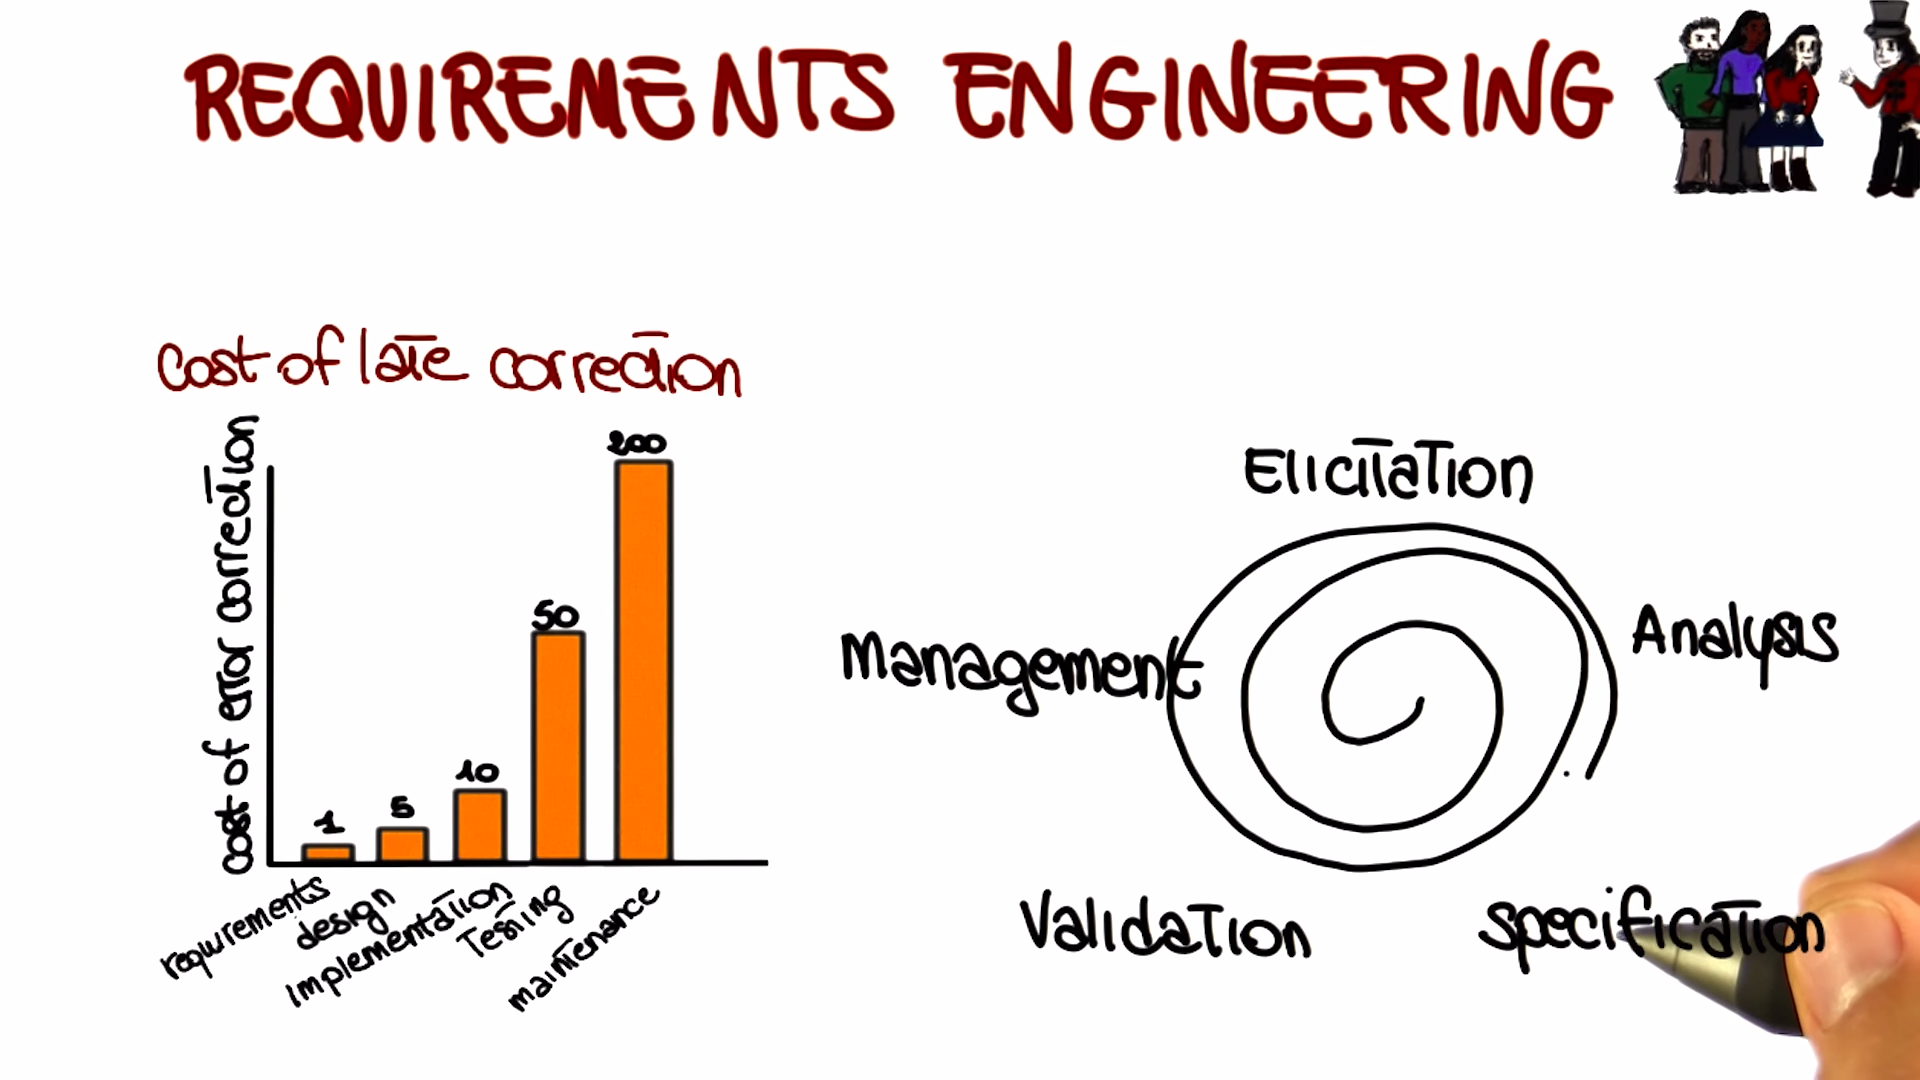 REQUIREMENTS ENGINEERING
cost of late correction
cost of error correction
200
50
10
5
1
requirements
design
Implementation
Testing
maintenance
Elicitation
Analysis
Management
Validation
specification